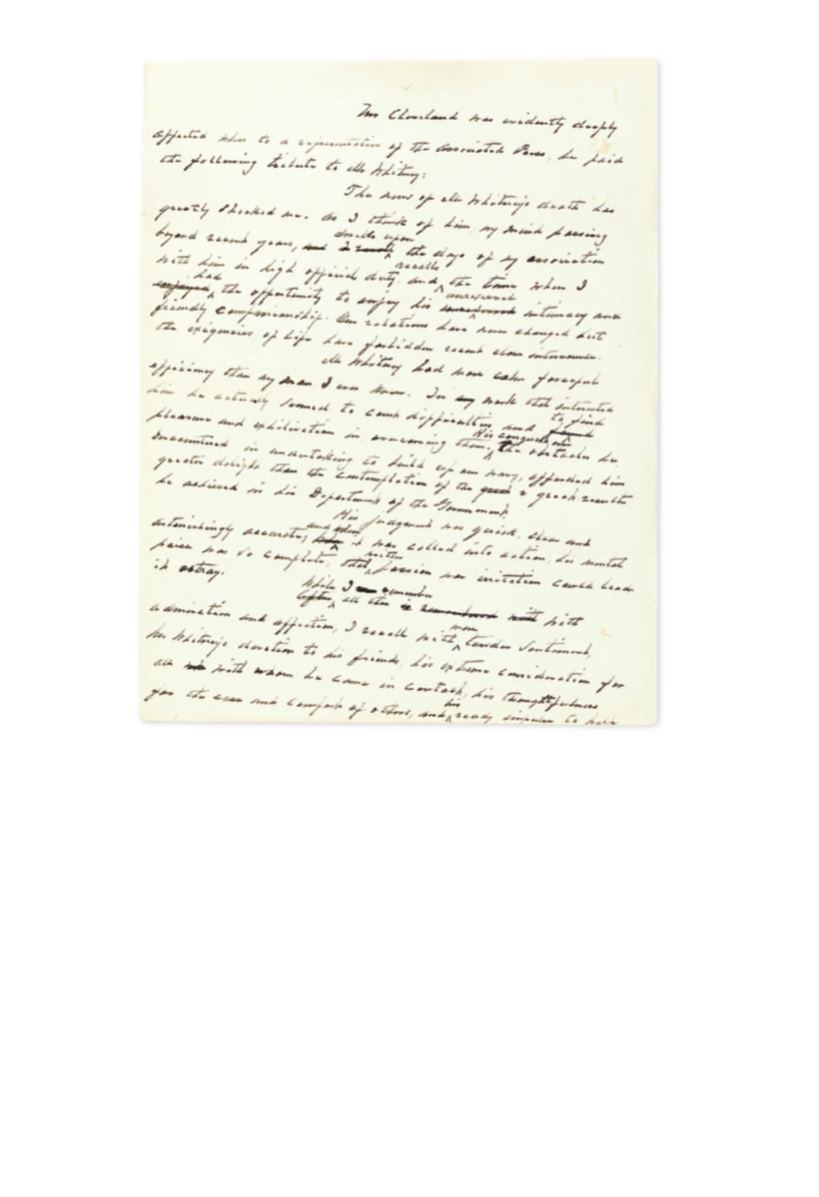 Mr Cleveland was evidently deeply
affected when to a representative of the Associated Press, he paid
the following tribute to Mr Whitney:
The news of Mr Whitney's death has
greatly shocked me. As I think of him my mind passing
beyond recent years, and I recall dwells upon the days of my association
with him in high official duty, and recalls the time when I
enjoyed had the opportunity to enjoy his unreserved intimacy and
friendly companionship. Our relations have never changed but
the exigencies of life have forbidden recent close intercourse.
Mr Whitney had more calm forceful
efficiency than any man I ever knew. In any work that interested
him he actually seemed to court difficulties and found to find
pleasure and exhiliration in overcoming them. His conquest over the obstacles he
encountered in undertaking to build up our navy, afforded him
greater delight than the contemplation of the great results
he achieved in his Department of the Government.
His judgment was quick, clear and
astonishingly accurate; and when it was called into action, his mental
poise was so complete, that neither passion nor irritation could lead
it astray.
After While I remember all this is remembered with with
admiration and affection, I recall with more tender sentiment,
Mr Whitney's devotion to his friends, his extreme consideration for
all with whom he came in contact, his thoughtfulness
for the care and comfort of others, and his ready impulse to help